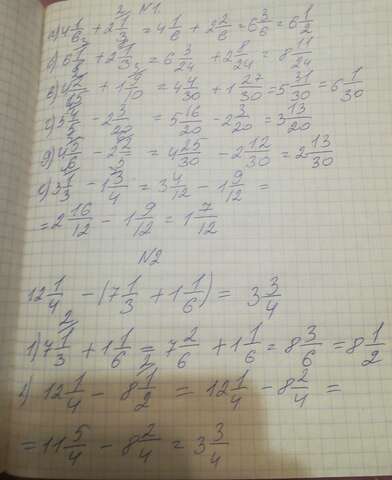 N1
а) 4 1/6 + 2 1/3 = 4 1/6 + 2 2/6 = 6 3/6 = 6 1/2
6 1/8 + 2 1/3 = 6 3/24 + 2 8/24 = 8 11/24
4 2/15 + 1 9/10 = 4 4/30 + 1 27/30 = 5 31/30 = 6 1/30
5 4/5 - 2 3/20 = 5 16/20 - 2 3/20 = 3 13/20
4 5/6 - 2 2/5 = 4 25/30 - 2 12/30 = 2 13/30
3 1/3 - 1 3/4 = 3 4/12 - 1 9/12 =
= 2 16/12 - 1 9/12 = 1 7/12
N2
12 1/4 - (7 1/3 + 1 1/6) = 3 3/4
1) 7 1/3 + 1 1/6 = 7 2/6 + 1 1/6 = 8 3/6 = 8 1/2
2) 12 1/4 - 8 1/2 = 12 1/4 - 8 2/4 =
= 11 5/4 - 8 2/4 = 3 3/4